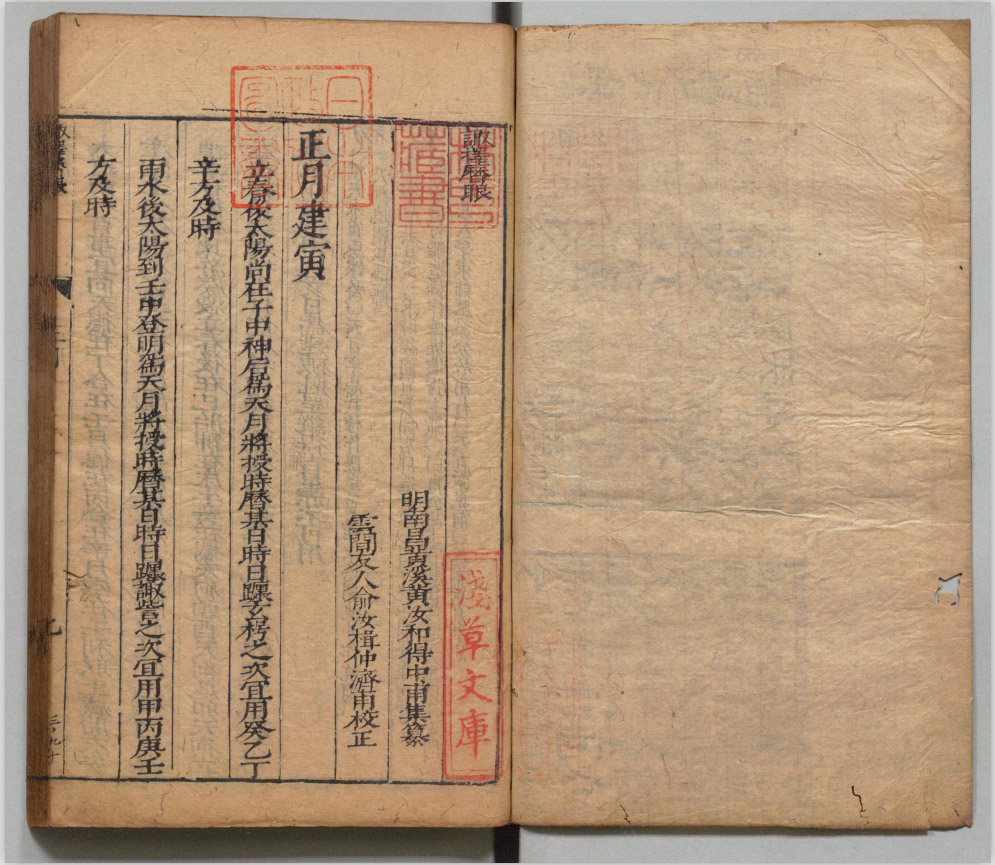 諏擇曆眼
明南昌黃溪黃汝和得中甫集纂
雲間友人俞汝楫仲濟甫校正
正月建寅
立春後太陽尚在子中神后爲天月將授時曆某日時日躔玄枵之次宜用癸乙丁
辛方及時
雨水後太陽到壬中登明爲天月將授時曆某日時日躔諏訾之次宜用甲丙庚壬
方及時
淺草文庫